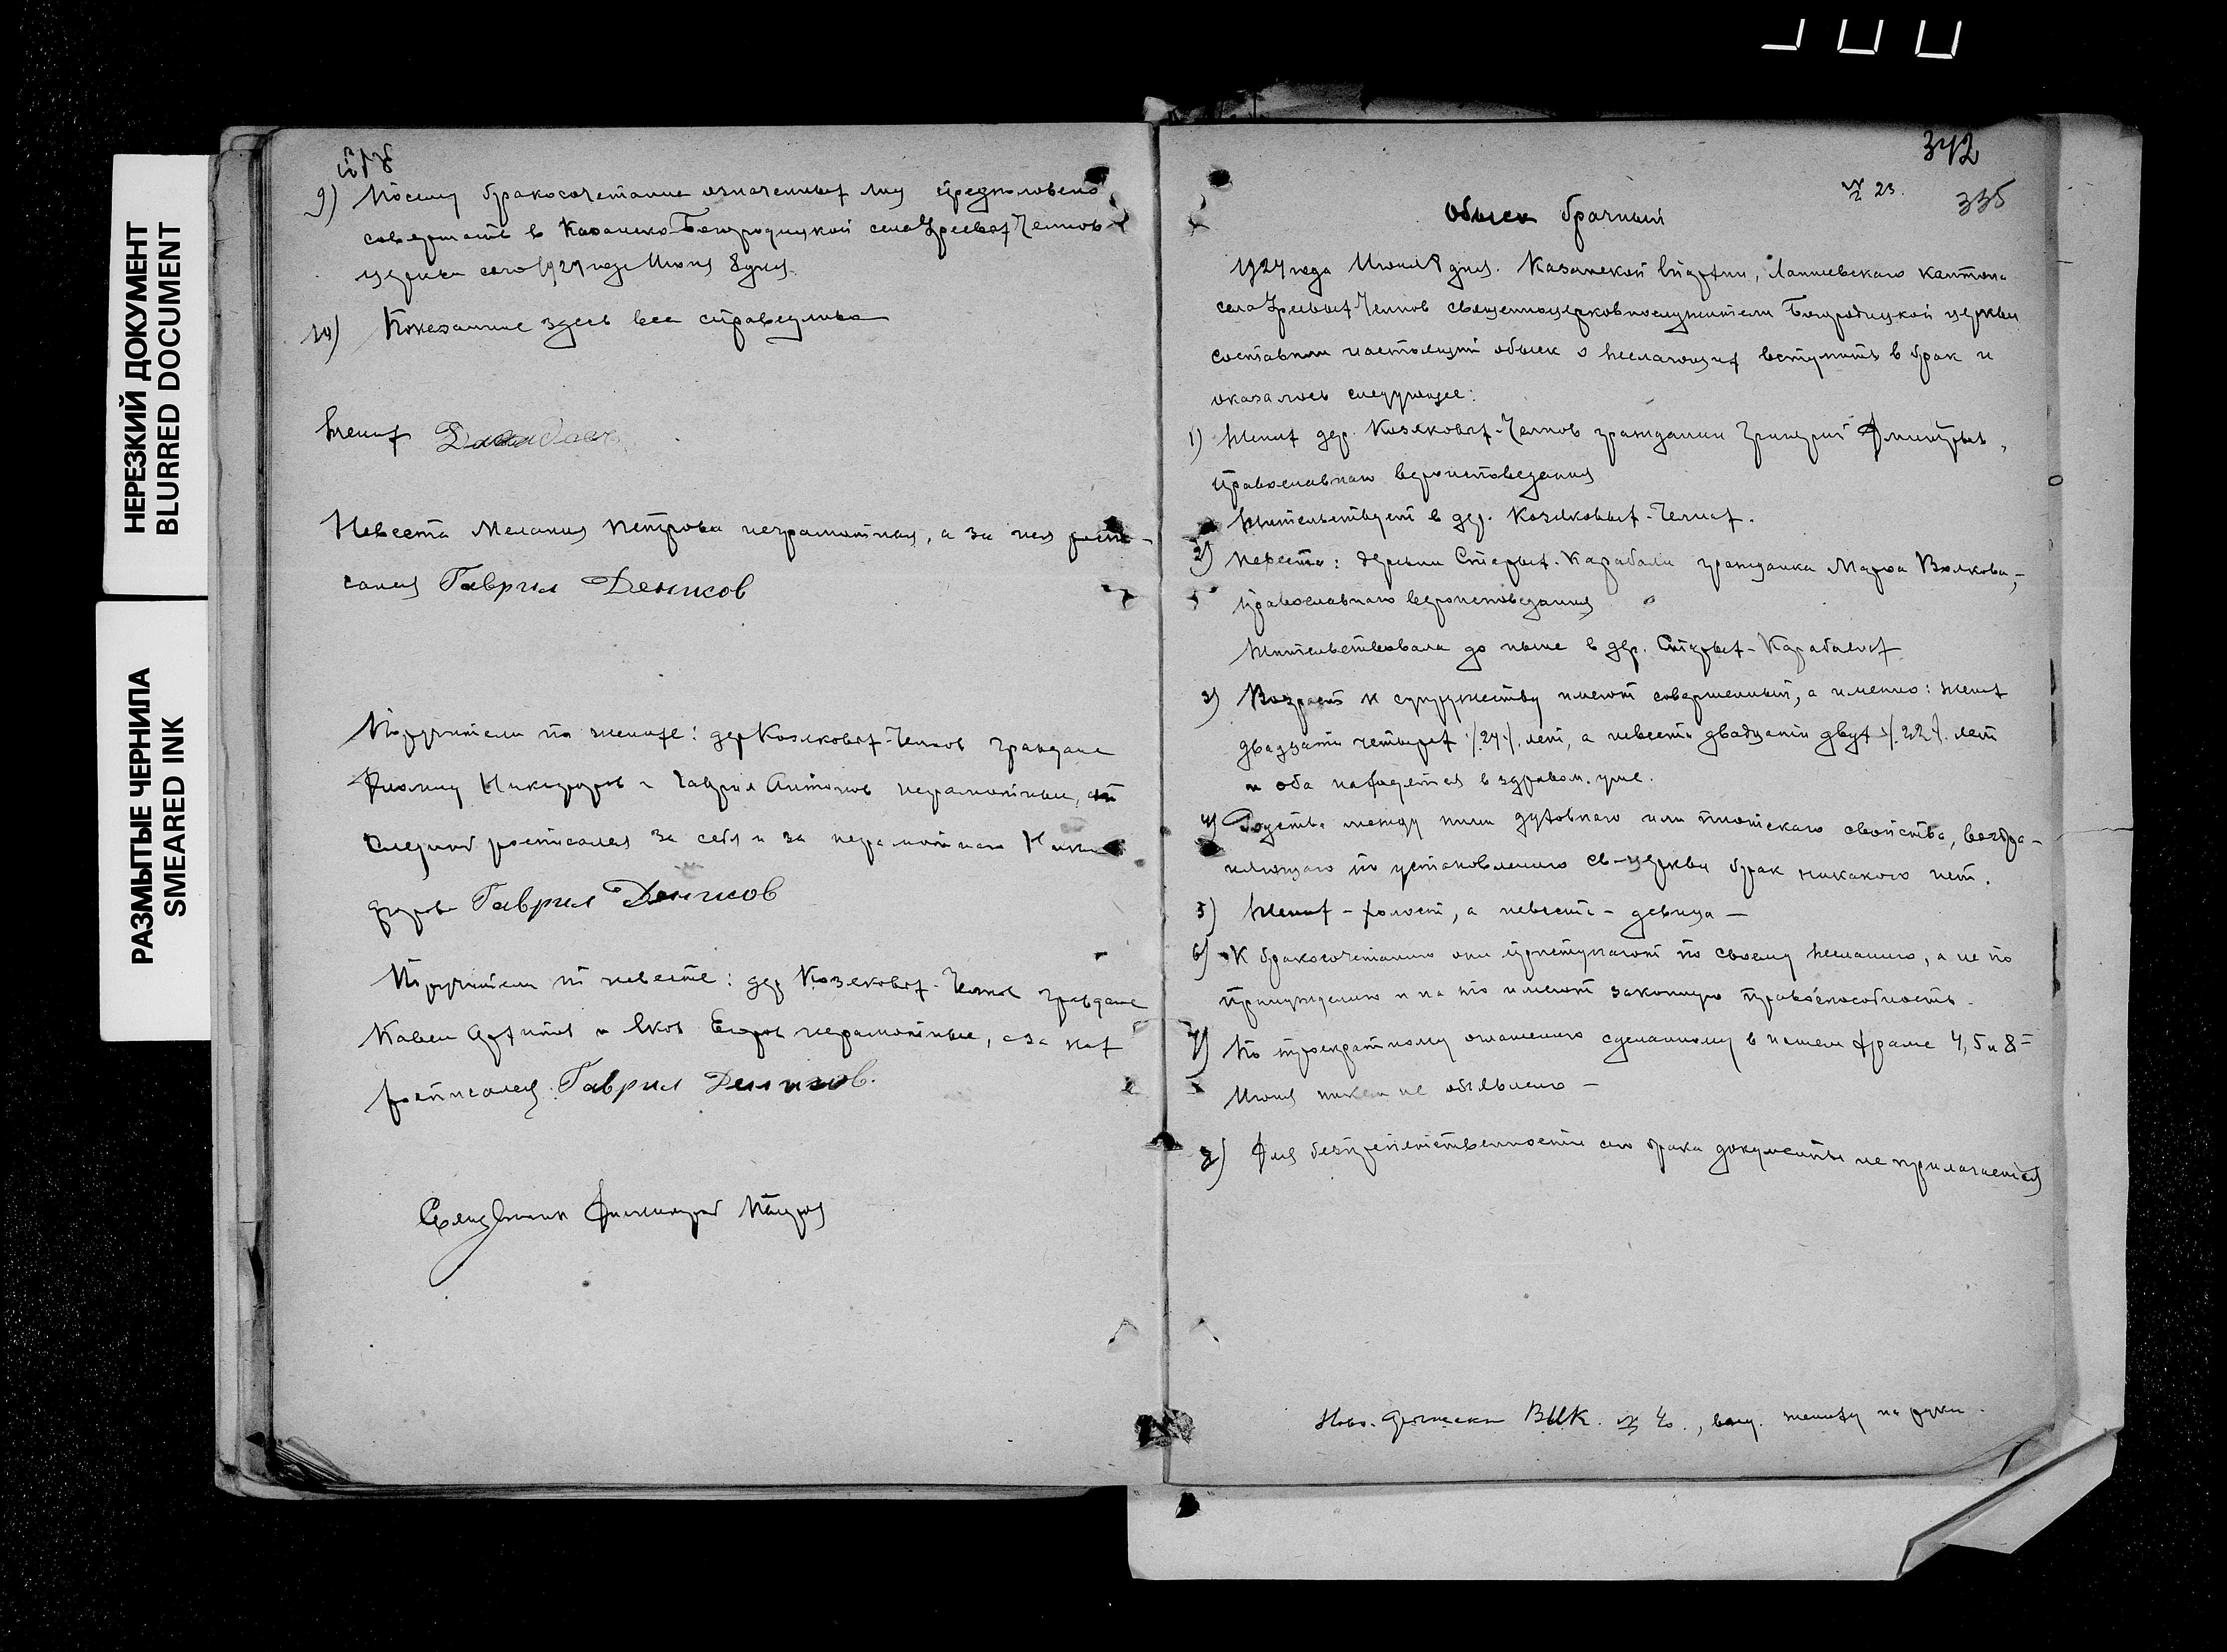 НЕРЕЗКИЙ ДОКУМЕНТ
BLURRED DOCUMENT
РАЗМЫТЫЕ ЧЕРНИЛА
SMEARED INK
9) Посему бракосочетание означенных лиц предположено
совершить в Казанско-Богородицкой села Чепчов
церкви сего 1924 года Июня 8 дня.
10) Показанное здесь все справедливо
Жених
Невеста Мелания Петрова неграмотная, а за нея роспи-
сался Гаврил Денисов
Поручители по женихе: дер Козяковых-Челнов граждане
Никифоров и Гаврил Антонов неграмотные,
росписался за себя и за неграмотнаго Ники
форова Гаврил Денисов
Поручители по невесте: дер Козяковых-Челнов граждане
Павел и Яков Егоров неграмотные, а за них
росписался Гаврил Денисов.
342
№ 23.
335
Обыск брачный
1924 года Июня 8 дня. Казанской Епархии, Лаишевскаго кантона
села Челнов священноцерковнослужители Богородицкой церкви
составили настоящий обыск о желающих вступить в брак и
оказалось следующее:
1) Жених дер. Козяковых-Челнов гражданин Григорий Дмитриев,
православнаго вероисповедания
Жительствует в дер. Козяковых-Челнах.
2) Невеста: деревни Старых-Карабали гражданка Марфа Волкова,-
православнаго вероисповедания
Жительствовала до ныне в дер. Старых-Карабалях
3) Возраст к супружеству имеют совершенный, а именно: жених
двадцати четырех /.24./ лет, а невеста двадцати двух /.22./ лет
и оба находятся в здравом уме.
4) Родства между ними духовнаго или плотскаго свойства, возбра-
няющаго по установлению св-церкви брак никакого нет.
5) Жених - холост, а невеста - девица —
6) К бракосочетанию они приступают по своему желанию, а не по
принуждению и на то имеют законную правоспособность.
7) По троекратному оглашению сделанному в нашем храме 4, 5 и 8-
Июня никем не объявлено —
8) Для безпрепятственности сего брака документы не прилагается
Ново. ВИК. № 40., выд. жениху на руки.